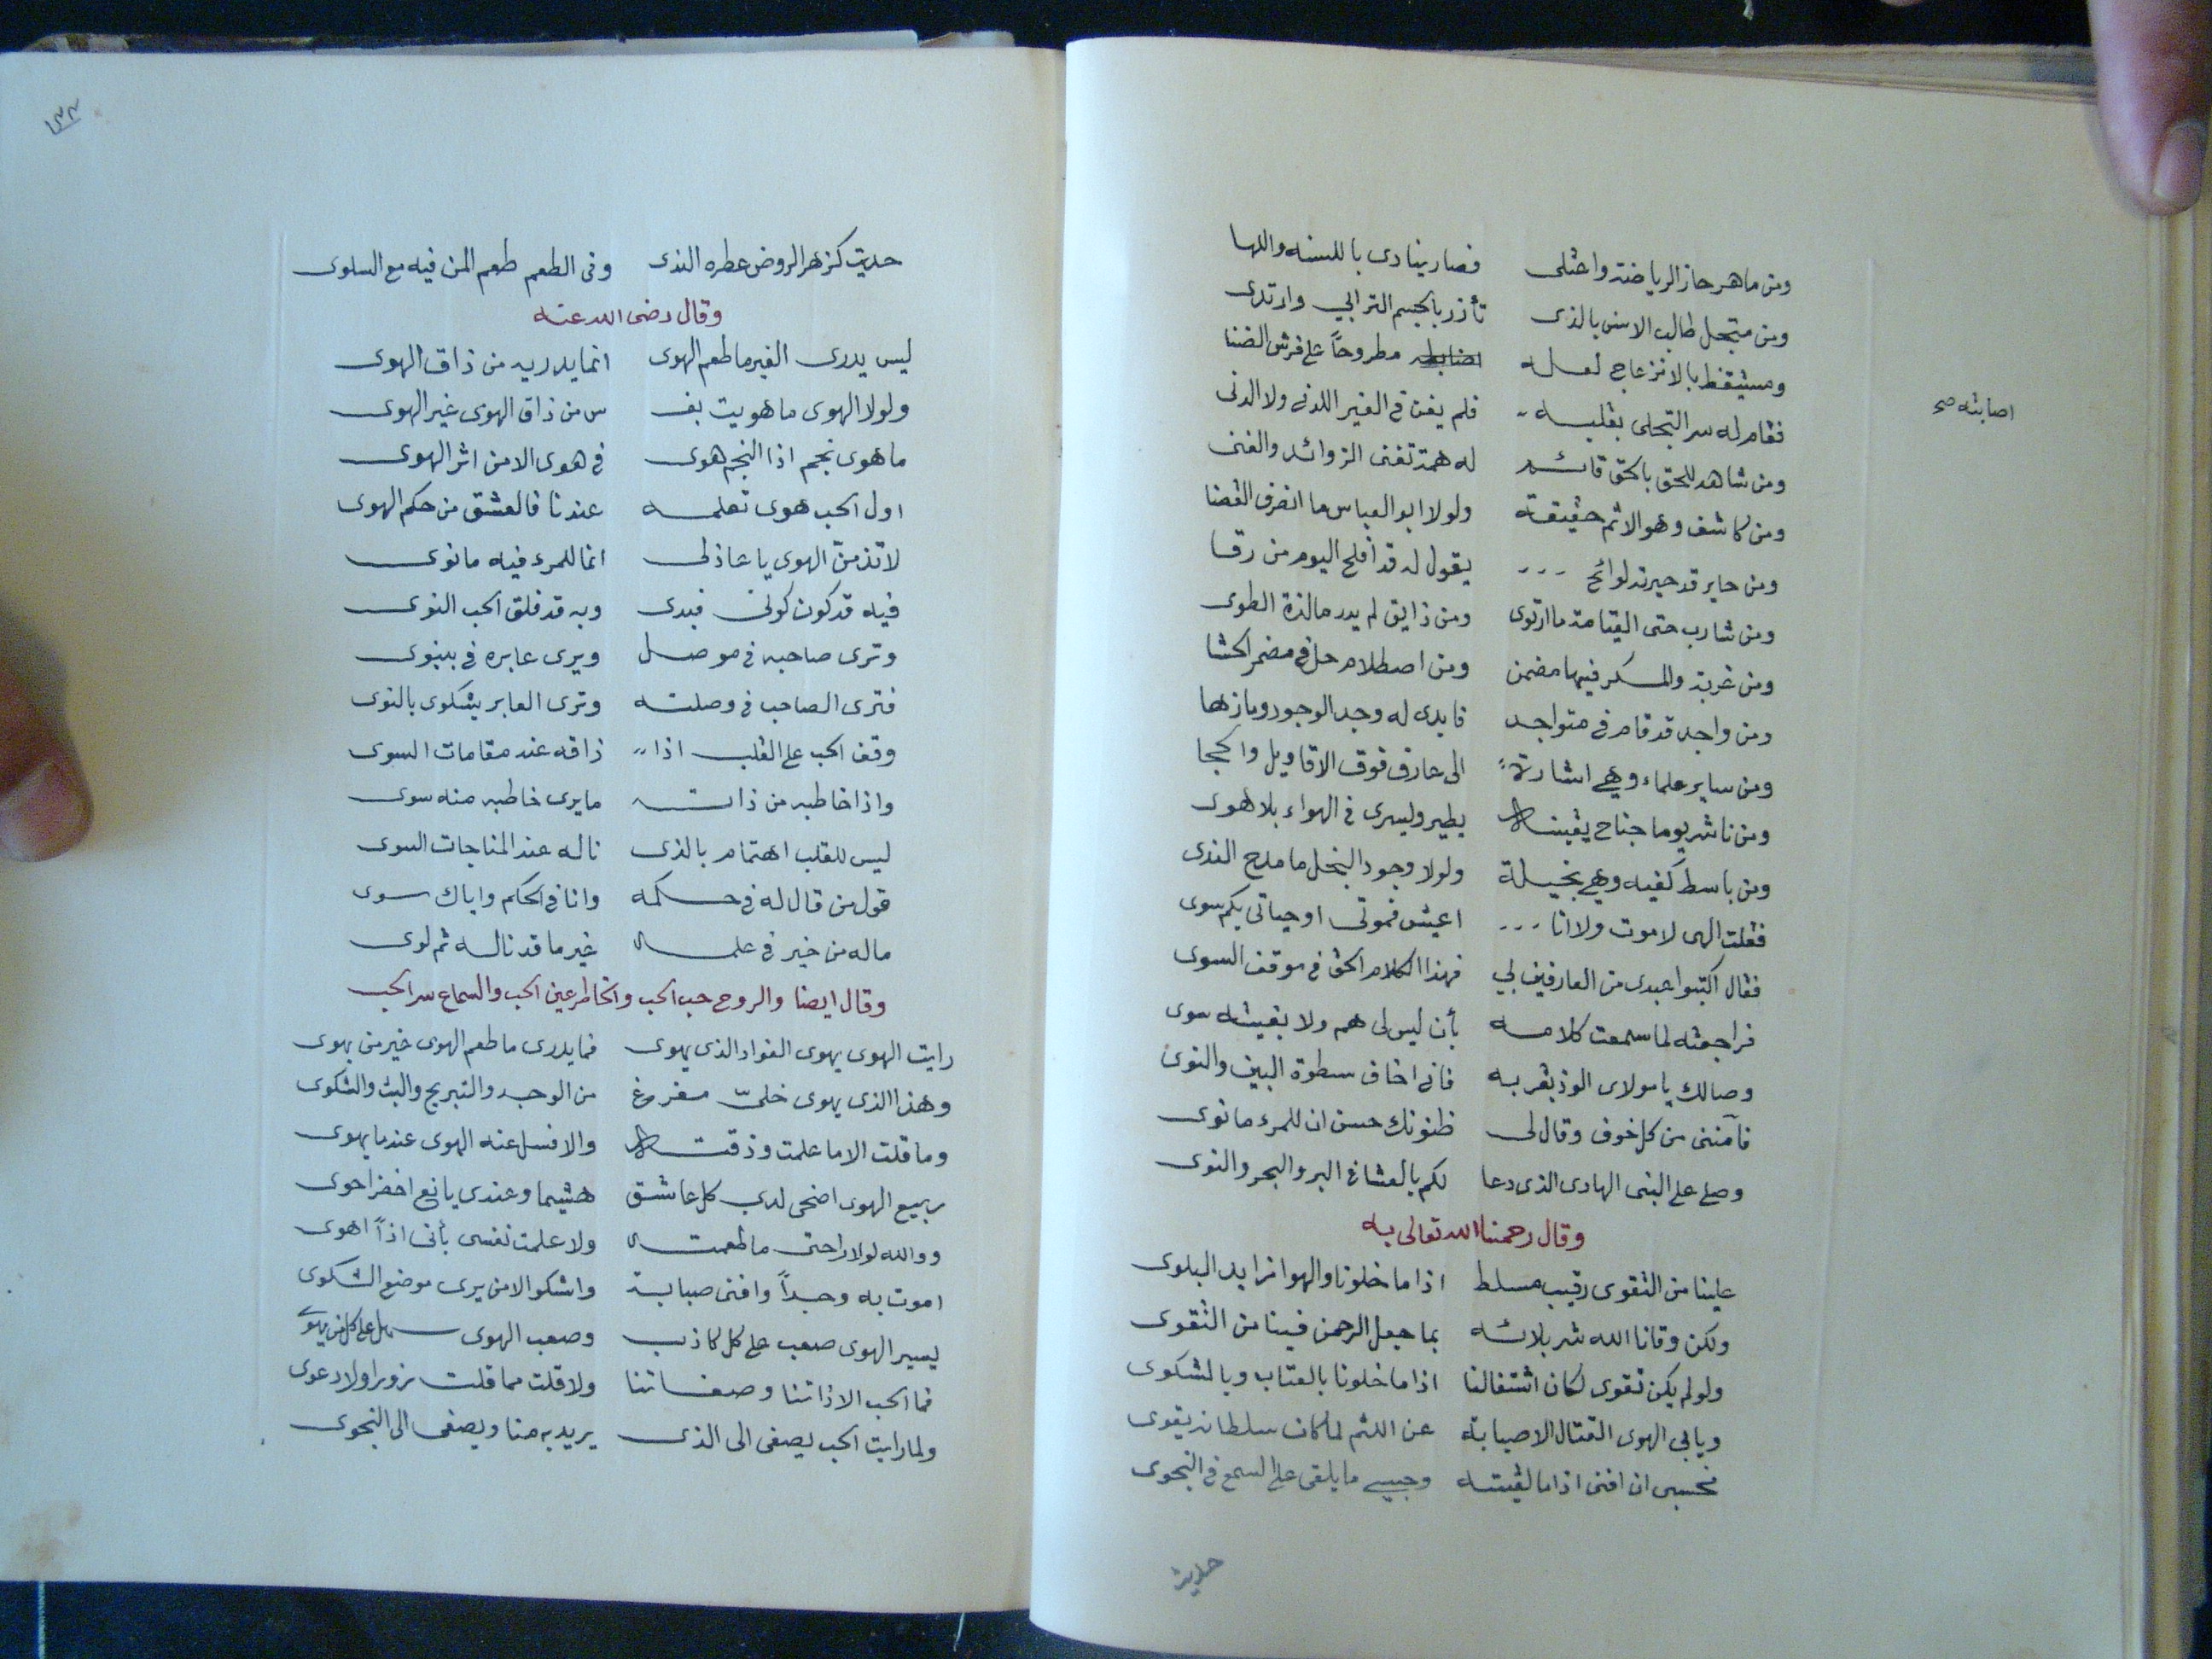 ومن ماهر حاز الرياضة واختلى فصار ينادى باللسنه واللها
ومن متجمل طالب الانس بالذى تأزر بالجسم الترابي وارتدى
ومستيقظ بالانزعاج لعله مطروحاً على فرش الضنا
اصابته صح
فقام له سر التجلى بقلبه فلم يفن فى الغير اللدنى ولا الدنى
ومن شاهد للحق بالحق قائم له همة تفنى الزوائد والفنى
ومن كاشف وهو الاتم حقيقة ولولا ابو العباس ما انصرف القضا
ومن حاير قد حيرته لوائح يقول له قد أفلح اليوم من رقا
ومن شارب حتى القيامة ما ارتوى ومن ذايق لم يدر ما لذة الطوى
ومن غربة والسكر فيها مضمن ومن اصطلام حل فى مضمر الحشا
ومن واجد قد قام فى متواجد فابدى له وجد الوجود وما زها
ومن ساير علماء وهي اشارة الى عارف فوق الاقاويل والحجا
ومن ناشر يوما جناح يقينه يطير وليسرى فى الهواء بلا هوى
ومن باسط كفيه وهي بخيلة ولولا وجود البخل ما مدح الندى
فقلت الهى لا موت ولا انا اعيش فموتى او حياتى بكم سوى
فقال اكتبوا عبدى من العارفين لي فهذا الكلام الحق فى موقف السوى
فراجعته لما سمعت كلامه بأن ليس لى هم ولا بغيته سوى
وصالك يا مولاى الوذ بقربه فانى اخاف سطوة البين والنوى
فآمننى من كل خوف وقال لى ظنونك حسن ان للمرء ما نوى
وصلى على النبى الهادى الذى دعا لكم بالعشا فى البر والبحر والنوى
وقال رحمنا الله تعالى به
علينا من التقوى رقيب مسلط اذا ما خلونا والهوا زايد البلوى
ولكن وقانا الله شر بلائه بما جعل الرحمن فينا من التقوى
ولو لم يكن تقوى لكان اشتغالنا اذا ما خلونا بالعتاب وبالشكوى
ويابى الهوى القتال الا صيانة عن اللثم لما كان سلطانه يقوى
فحسبى ان افنى اذا ما لقيته وحسبي ما يلقى على السمع فى النجوى
حديث
١٣٢
حديث كزهر الروض عطره الندى وفى الطعم طعم المن فيه مع السلوى
وقال رضى الله عنه
ليس يدرى الغير ما طعم الهوى انما يدريه من ذاق الهوى
ولولا الهوى ما هويت نف س من ذاق الهوى غير الهوى
ما هوى نجم اذا النجم هوى فى هوى الا من اثر الهوى
اول الحب هوى تعلمه عندنا فالعشق من حكم الهوى
لا تذمنّ الهوى يا عاذلى انما للمرء فيه ما نوى
فيه قد كون كونى فبدى وبه قد فلق الحب النوى
وترى صاحبه فى موصل ويرى عابره فى نينوى
فترى الصاحب فى وصلته وترى العابر يشكوى بالنوى
وقف الحب على القلب اذا ذاقه عند مقامات السوى
واذا خاطبه من ذاته ما يرى خاطبه منه سوى
ليس للقلب اهتمام بالذى ناله عند المناجات السوى
قول من قال له فى حكمه وانا فى الحكم واياك سوى
ماله من خير فى علمه غير ما قد ناله ثم لوى
وقال ايضا والروح حب الحب والخاطر عين الحب والسماع سر الحب
رايت الهوى يهوى الفواد الذى يهوى فما يدرى ما طعم الهوى خير من يهوى
وهذا الذى يهوى خليّ مفرغ من الوجد والتبريح والبث والشكوى
وما قلت الا ما علمت وذقته والا فسل عنه الهوى عندما يهوى
ربيع الهوى اضحى لدى كل عاشق هشيما وعندى يانع اخضر احوى
ووالله لولا راحتى ما طعمته ولا علمت نفسى بأنى اذاً اهوى
اموت به وجداً وافنى صبابة واشكو الا من يرى موضع الشكوى
يسير الهوى صعب على كل كاذب وصعب الهوى سهل على كل من يهوى
فما الحب الا ذاتنا وصفاتنا ولا قلت مما قلت زورا ولا دعوى
ولما رايت الحب يصغى الى الذى يريد به منا ويصغى الى النجوى